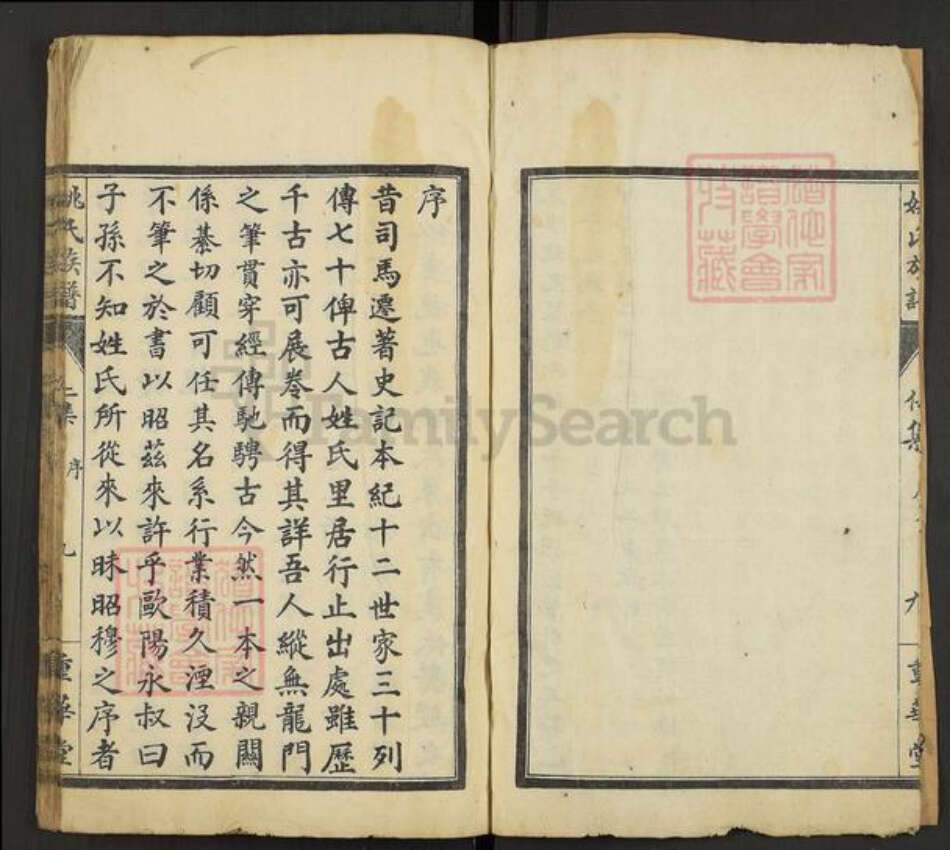 姚氏族譜
仁集
九
重華堂
序
昔司馬遷著史記本紀十二世家三十列
傳七十俾古人姓氏里居行止出處雖歷
千古亦可展卷而得其詳吾人縱無龍門
之筆貫穿經傳馳騁古今然一本之親關
係綦切顧可任其名系行業積久湮沒而
不筆之於書以昭茲來許乎歐陽永叔曰
子孫不知姓氏所從來以昧昭穆之序者
姚氏族譜
仁集
序
九
重華堂
FamilySearch